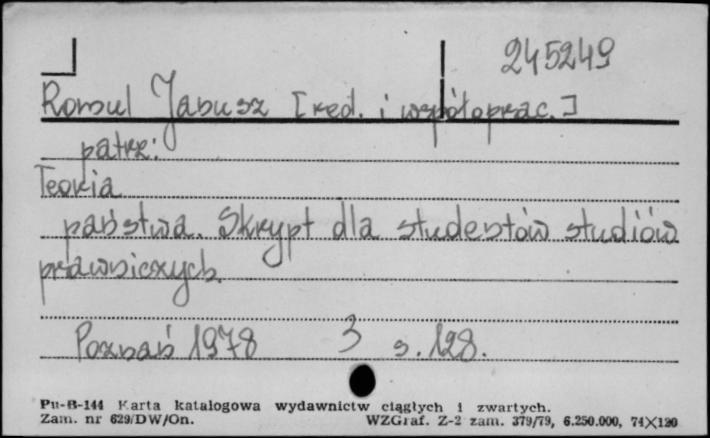 245249
Romul Janusz [red. i współoprac.]
patrz:
Teoria
państwa. Skrypt dla studentów studiów
prawniczych.
Poznań 1978 3 s. 128.
Pu-B-144 Karta katalogowa wydawnictw ciągłych i zwartych.
Zam. nr 629/DW/On. WZGraf. Z-2 zam. 379/79, 6.250.000, 74X120